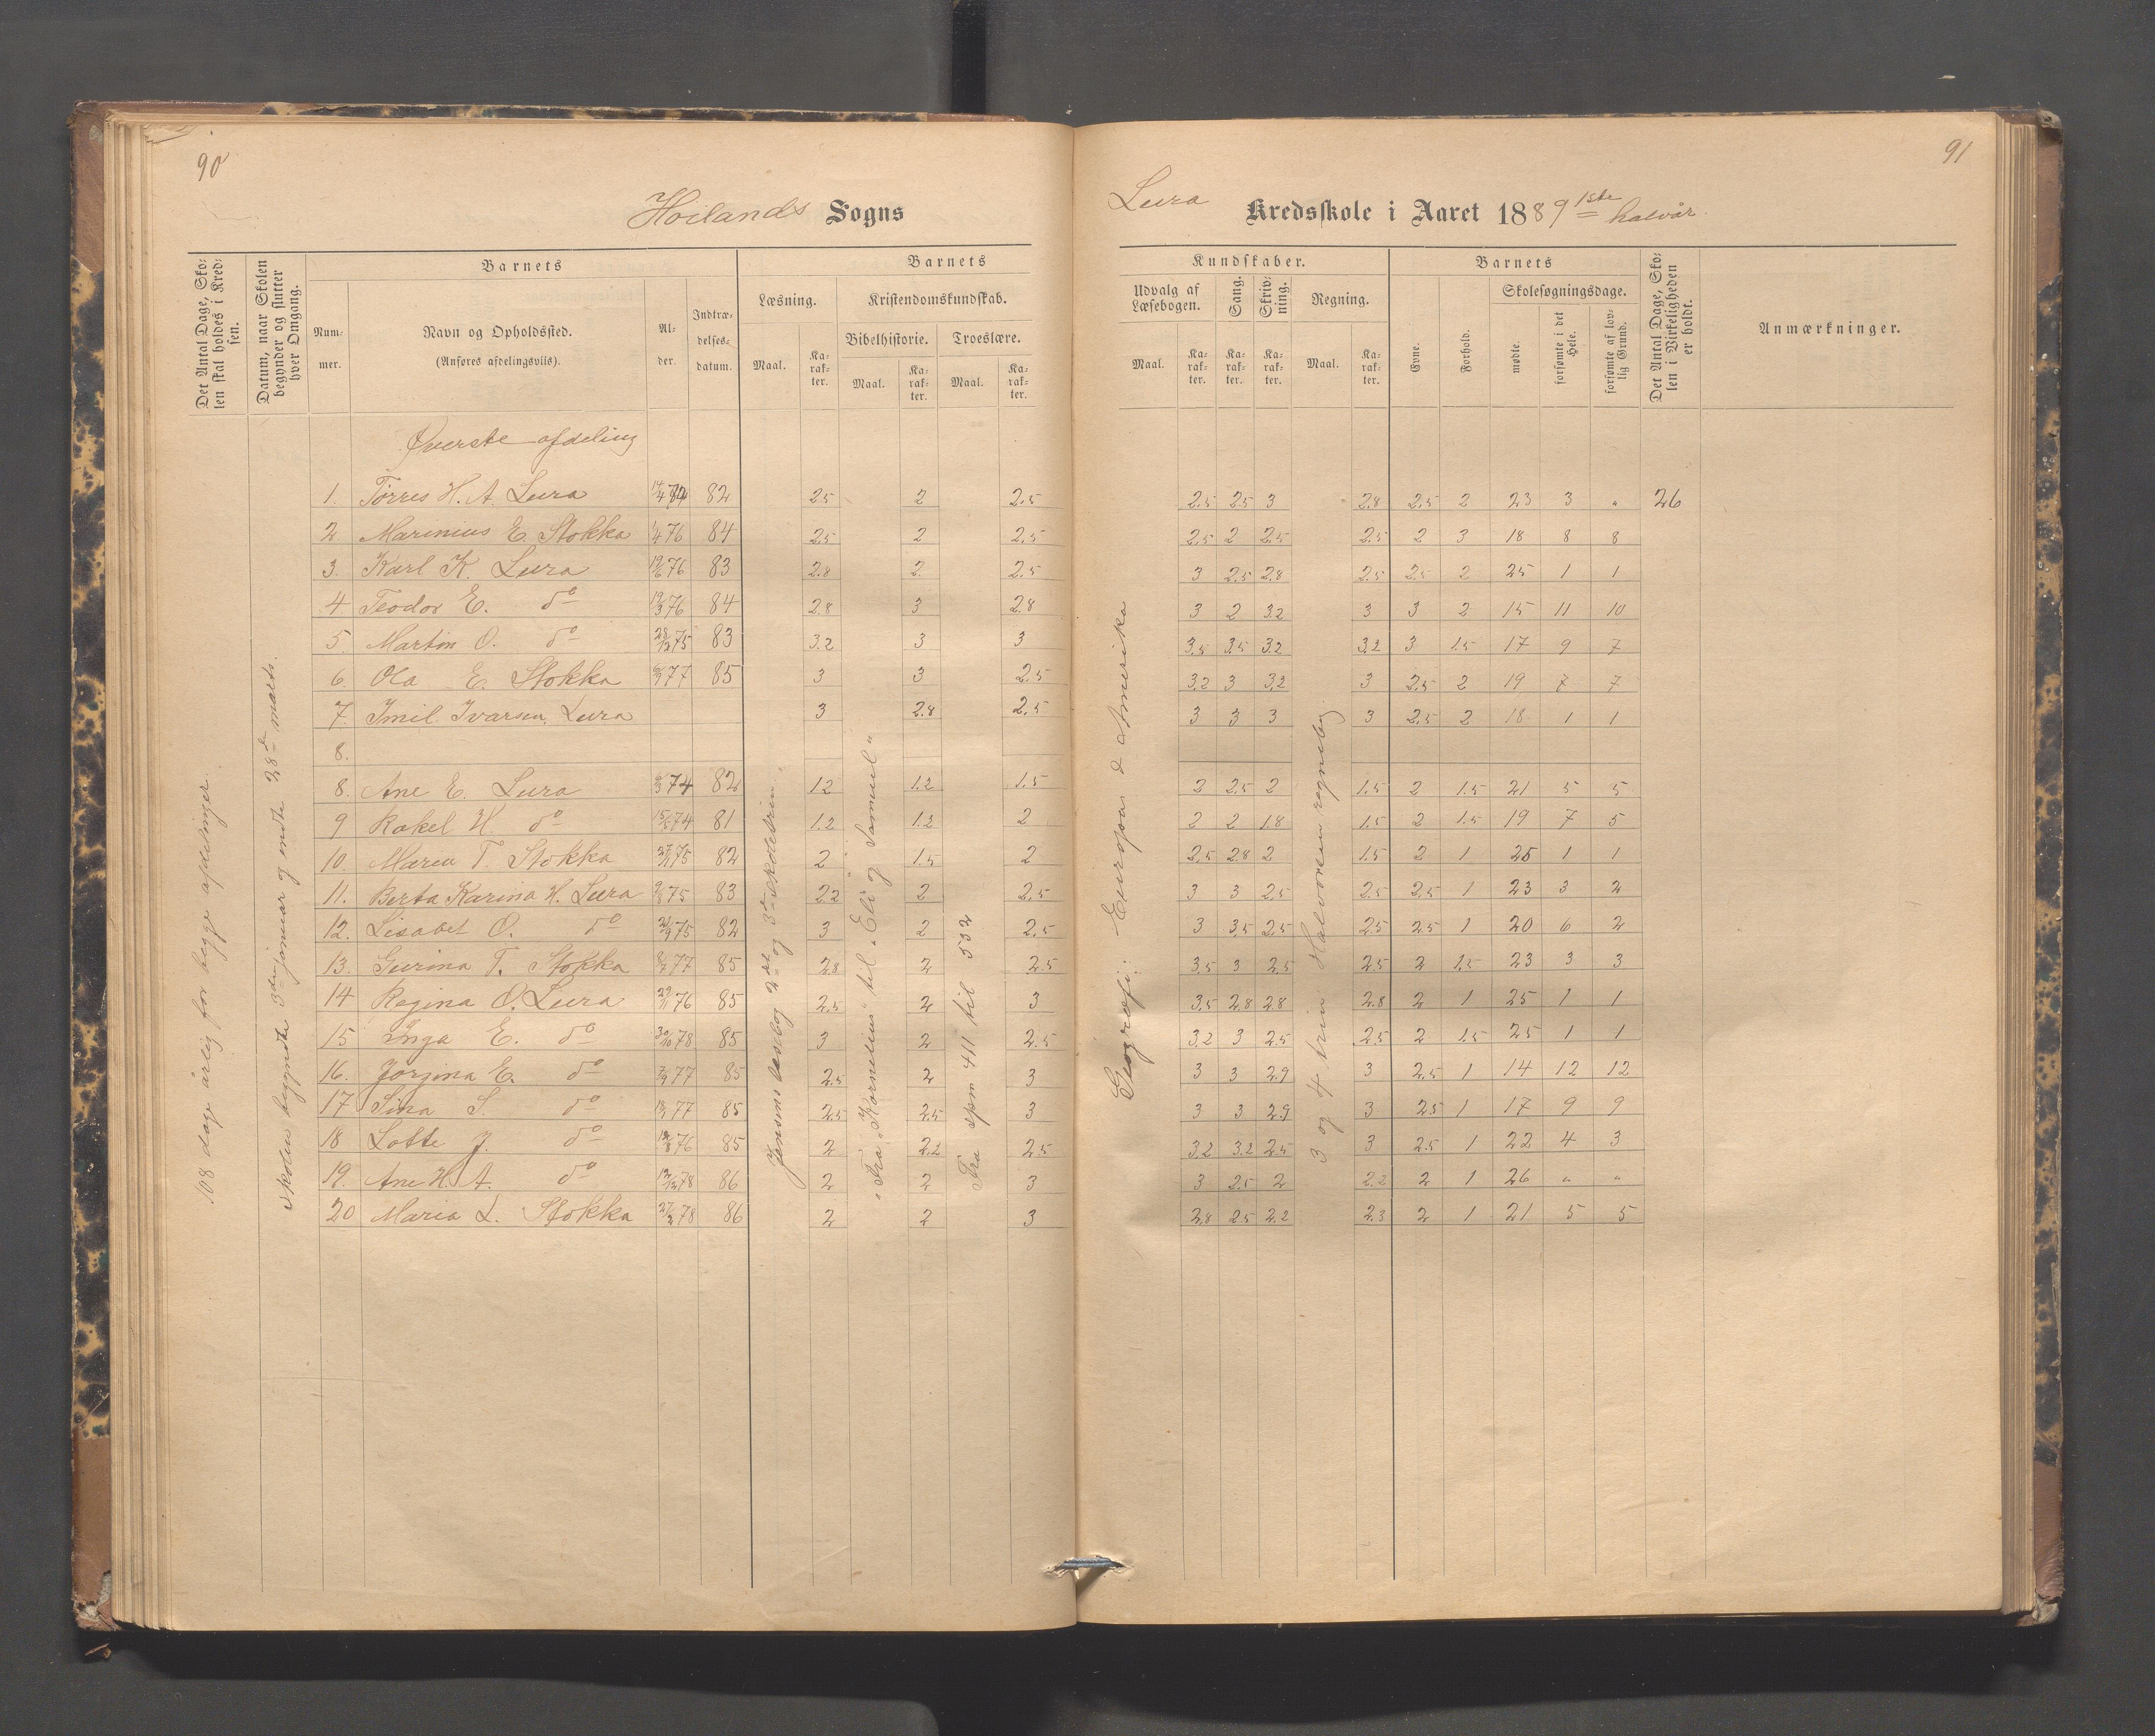 90
Höilands Sogns
Det Antal Dage, Sko-
len skal holdes i Kred-
sen.
Datum, naar Skolen
begynder og slutter
hver Omgang.
Barnets
Num-
mer.
Navn og Opholdssted.
(Anføres afdelingsviis).
Al-
der.
Indtræ-
delses-
datum.
Barnets
Læsning.
Kristendomskundskab.
Bibelhistorie.
Troeslære.
Maal.
Ka-
rak-
ter.
Maal.
Ka-
rak-
ter.
Maal.
Ka-
rak-
ter.
108 dage årlig for begge afdelinger.
Skolen begyndte 3die januar og endte 28de marts.
Jensens læsebog 2det og 3de skoletrin.
"Fra "Kornelius" til "Eli og Samuel"
Fra spm 411 til 532
Øverste afdeling
1. Törres H. A. Lura 82 2.5 2 2.5
2 Marinius E. Stokka 1/4 76 84 2.5 2 2.5
3. Karl K. Lura 19/6 76 83 2.8 2 2.5
4 Teodor E. do 19/3 76 84 2.8 3 2.8
5. Martin O. do 28/12 75 83 3.2 3 3
6. Ola E. Stokka 77 85 3 3 2.5
7. Imil Ivarsen Lura 3 2.8 2.5
8.
8. Ane E. Lura 74 82 1.2 1.2 1.5
9 Rakel H. do 15/5 74 81 1.2 1.2 2
10. Maren T. Stokka 27/11 75 82 2 1.5 2
11. Berta Karina H. Lura 75 83 2.2 2 2.5
12. Lisabet O. do 75 82 3 2 2.5
13. Gurina T. Stokka 77 85 2.8 2 2.5
14 Regina O. Lura 29/11 76 85 2.5 2 3
15 Inga E. do 30/10 78 85 3 2 2.5
16. Jorgina E. do 77 85 2.5 2 3
17 Sina S. do 77 85 2.5 2.5 3
18 Lotte J. do 76 85 2 2.2 2.5
19. Ane H. A. do 12/12 78 86 2 2 3
20 Maria L. Stokka 78 86 2 2 3
91
Lura Kredsskole i Aaret 1889 1ste halvår.
Kundskaber.
Udvalg af
Læsebogen.
Sang.
Skriv-
ning.
Regning.
Maal.
Ka-
rak-
ter.
Ka-
rak-
ter.
Ka-
rak-
ter.
Maal.
Ka-
rak-
ter.
Barnets
Evne.
Forhold.
Skolesøgningsdage.
mødte.
forsømte i det
Hele.
forsømte af lov-
lig Grund.
Det Antal Dage, Sko-
len i Virkeligheden
er holdt.
Anmærkninger.
Geografi: Europas & Amerika
3 og 4 trin Halvorsen regnebog.
2.5 2.5 3 2.8 2.5 2 23 3 " 26
2.5 2 2.5 2.5 2 3 18 8 8
3 2.5 2.8 2.5 2.5 2 25 1 1
3 2 3.2 3 3 2 15 11 10
3.5 3.5 3.2 3.2 3 1.5 17 9 7
3.2 3 3.2 3 2.5 2 19 7 7
3 3 3 3 2.5 2 18 1 1
2 2.5 2 1.5 2 1.5 21 5 5
2 2 1.8 1.5 2 1.5 19 7 5
2.5 2.8 2 1.5 2 1 25 1 1
3 3 2.5 2.5 2.5 1 23 3 2
3 3.5 2.5 2.5 2.5 1 20 6 2
3.5 3 2.5 2.5 2 1.5 23 3 3
3.5 2.8 2.8 2.8 2 1 25 1 1
3.2 3 2.5 2.5 2 1.5 25 1 1
3 3 2.9 3 2.5 1 14 12 12
3 3 2.9 3 2.5 1 17 9 9
3.2 3.2 2.5 3 2.5 1 22 4 3
3 2.5 2 2.2 2 1 26 " "
2.8 2.5 2.2 2.3 2 1 21 5 5